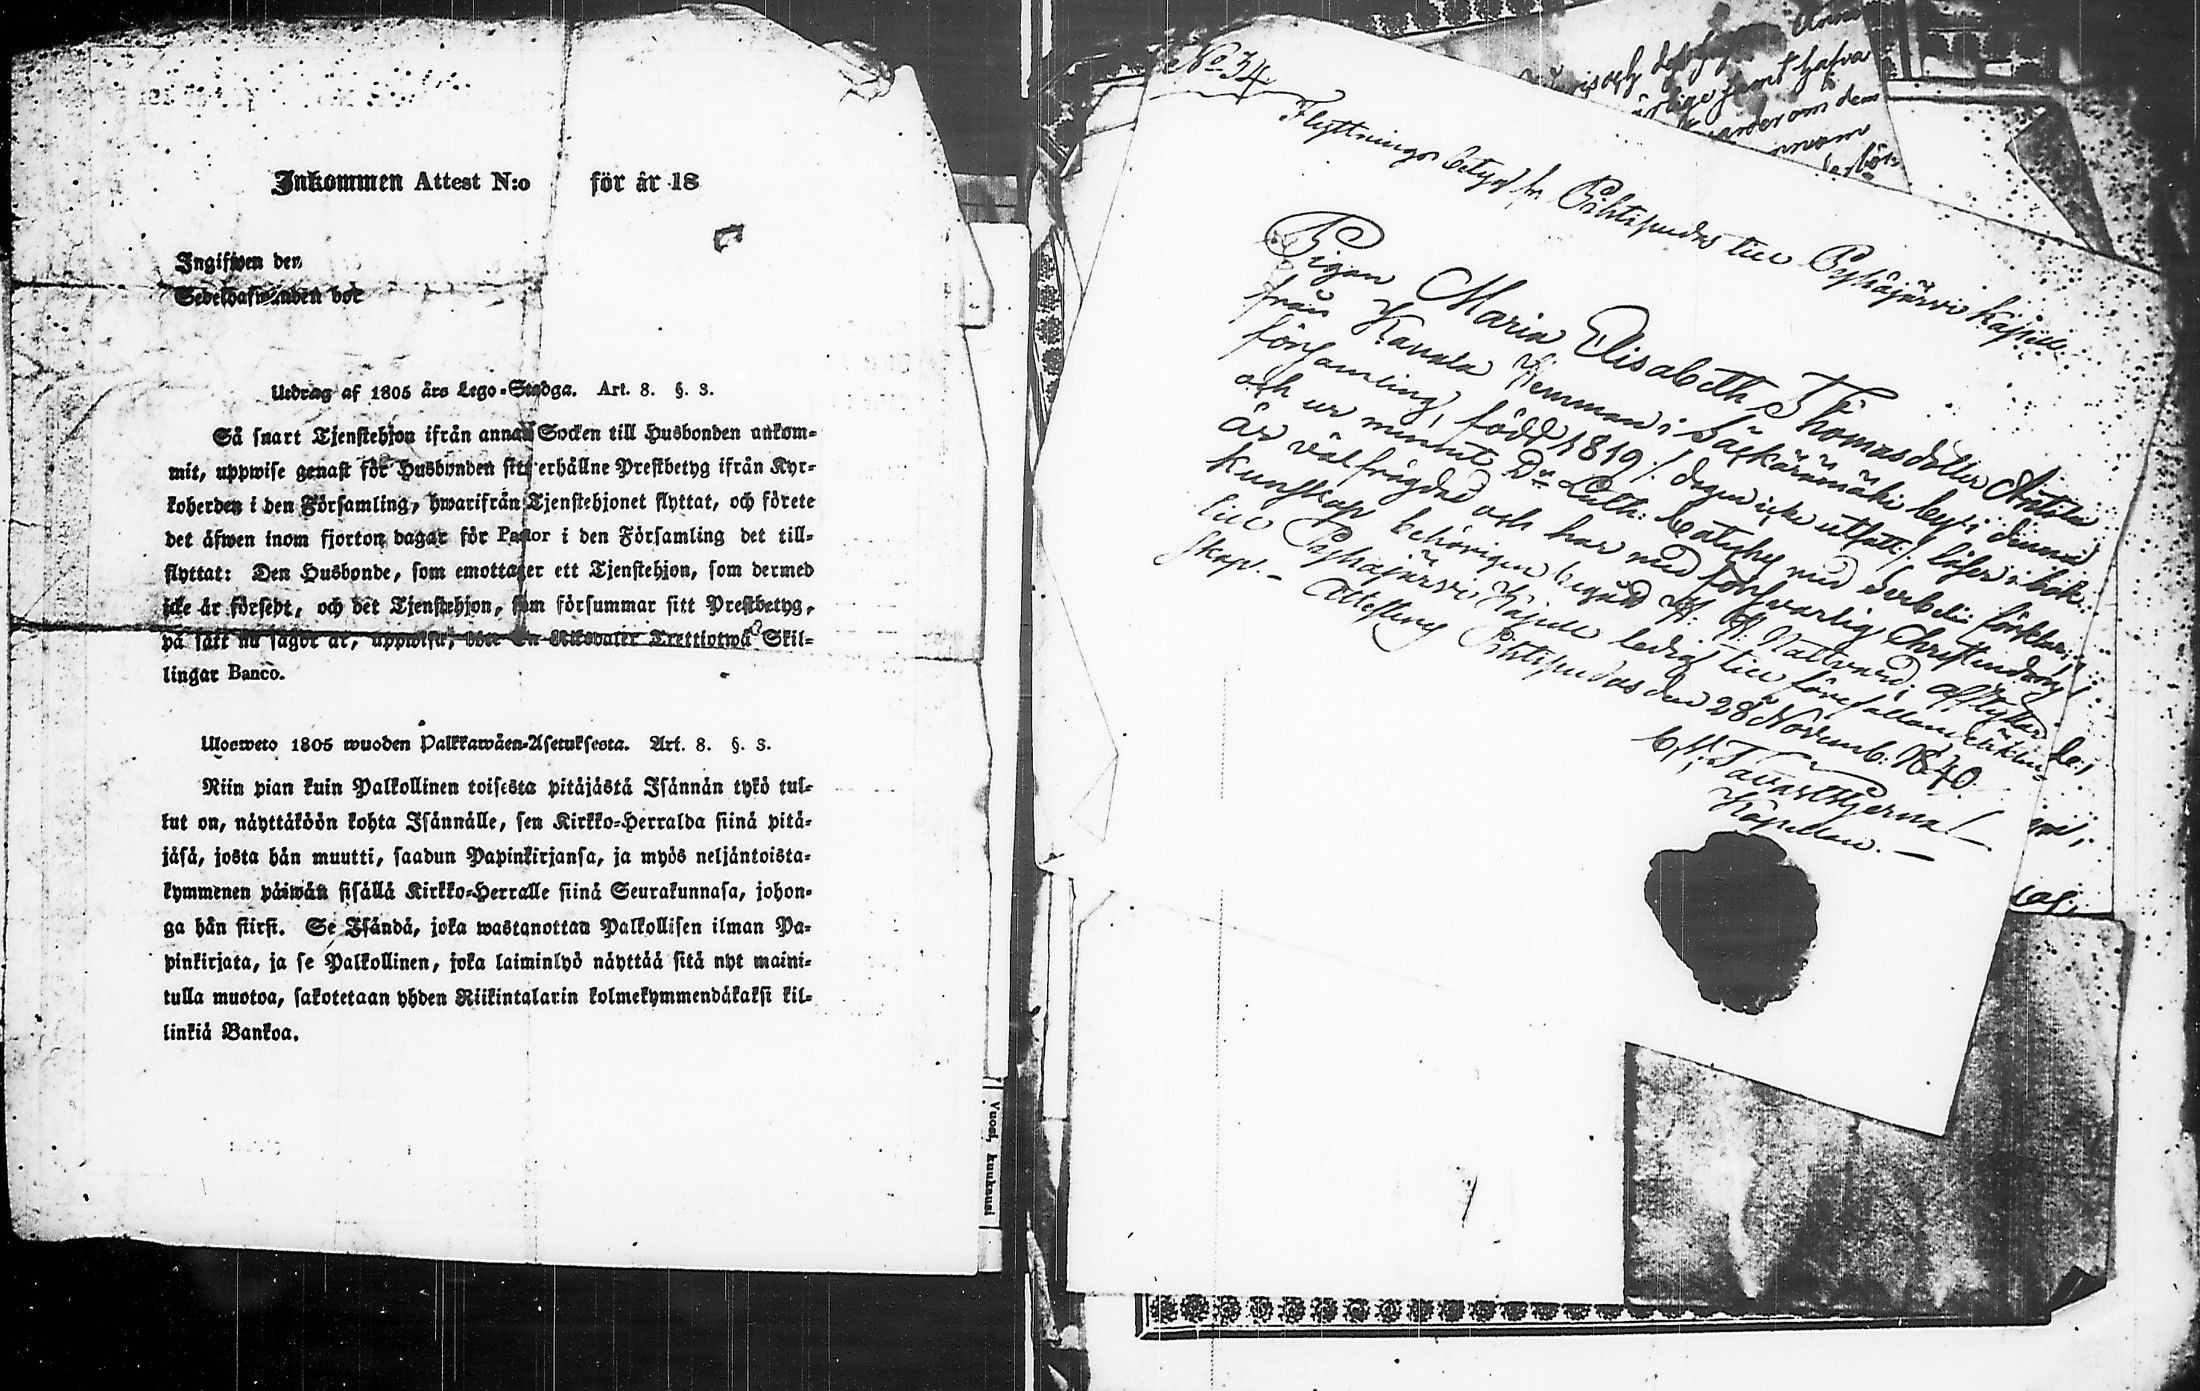 Inkommen Attest N:o för år 18
Ingifwen den
Sedelhafwanden bor
Utdrag af 1805 års Lego-Stadga. Art. 8. §. 3.
Så snart Tjenstehjon ifrån annan Socken till Husbonden ankom-
mit, uppwise genast för Husbonden sitt erhållne Prestbetyg ifrån Kyr-
koherden i den Församling, hwarifrån Tjenstehjonet flyttat, och förete
det äfwen inom fjorton dagar för Pastor i den Församling det till-
flyttat: Den Husbonde, som emottager ett Tjenstehjon, som dermed
icke är försedt, och det Tjenstehjon, som försummar sitt Prestbetyg,
på sätt nu sagdt är, uppwisa, böte En Riksdaler Trettiotwå Skil-
lingar Banco.
Ulosweto 1805 wuoden Palkkawäen-Asetuksesta. Art. 8. §. 3.
Niin pian kuin Palkollinen toisesta pitäjästä Isännän tykö tul-
lut on, näyttäköön kohta Isännälle, sen Kirkko-Herralda siinä pitä-
jäsä, josta hän muutti, saadun Papinkirjansa, ja myös neljäntoista-
kymmenen päiwän sisällä Kirkko-Herralle siinä Seurakunnasa, johon-
ga hän siirsi. Se Isändä, joka wastanottaa Palkollisen ilman Pa-
pinkirjata, ja se Palkollinen, joka laiminlyö näyttää sitä nyt maini-
tulla muotoa, sakotetaan yhden Riikintalarin kolmekymmendäkaksi kil-
linkiä Bankoa.
Vuosi, kuukausi
No 34.
Flyttnings betyg fr. Pihtipudas till Pyhäjärvi Kapell.
Pigan Maria Elisabeth Thomasdotter Anttila
från Kanala Hemman i Sääkärämäki by i denna
församling, född 1819 /: dagen icke utsatt :/ läser i bok
och ur minnet Dr Luth: Catches med Svebelii förklar:;
är välfrägdad och har med försvarlig Christendoms
kunskap behörigen begådt H: H: Nattvard; afflyttar
till Pyhäjärvi Kapell ledig till förefallan äkten-
skap. - Attesterar Pihtipudas den 28 Novemb: 1840.
C. H. Tavaststjerna
Kapellan. -